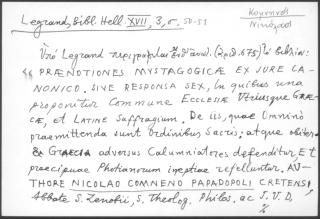 Legrand, Bibl. Hell. XVII, 3, σ. 50-51
Κομνηνός
Νικόλαος
Ὑπὸ Legrand περιγράφεται (ἀριθ. 675) τὸ βιβλίον:
« PRÆNOTIONES MYSTAGOGICÆ EX JURE CA-
NONICO. SIVE RESPONSA SEX, in quibus una
proponitur Commune ECCLESIÆ Utriusque GRÆ-
CÆ, et LATINE Suffragium. De iis, quæ Omninò
præmittenda sunt Ordinibus Sacris; atque obiter
& GRÆCIA adversus Calumniatores defenditur, Et
præcipuae Photianorum ineptiae refelluntur, AU-
THORE NICOLAO COMNENO PAPADOPOLI CRETENSI
Abbate S. Zenobii, S. Theolog. Philos. ac J. V. D.